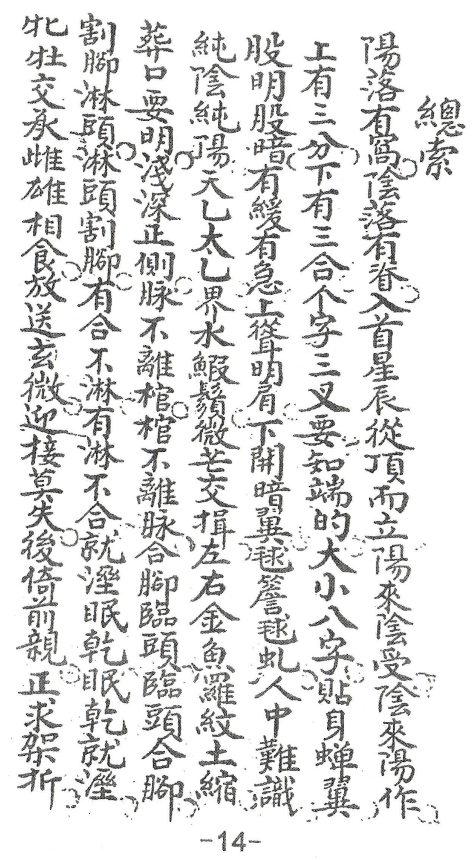 總索
陽落有窩陰落有脊入首星辰從頂而立陽來陰受陰來陽作
上有三分下有三合个字三叉要知端的大小八字貼身蟬翼
股明股暗有緩有急上聳明肩下開暗翼毬簷毬虬人中難識
純陰純陽天乙太乙界水鰕鬚微芒交揖左右金魚羅紋土縮
葬口要明淺深正側脉不離棺棺不離脉合腳臨頭臨頭合腳
割腳淋頭淋頭割腳有合不淋有淋不合就溼眠乾眠乾就溼
牝牡交承雌雄相食放送玄微迎接莫失後倚前親正求架折
-14-